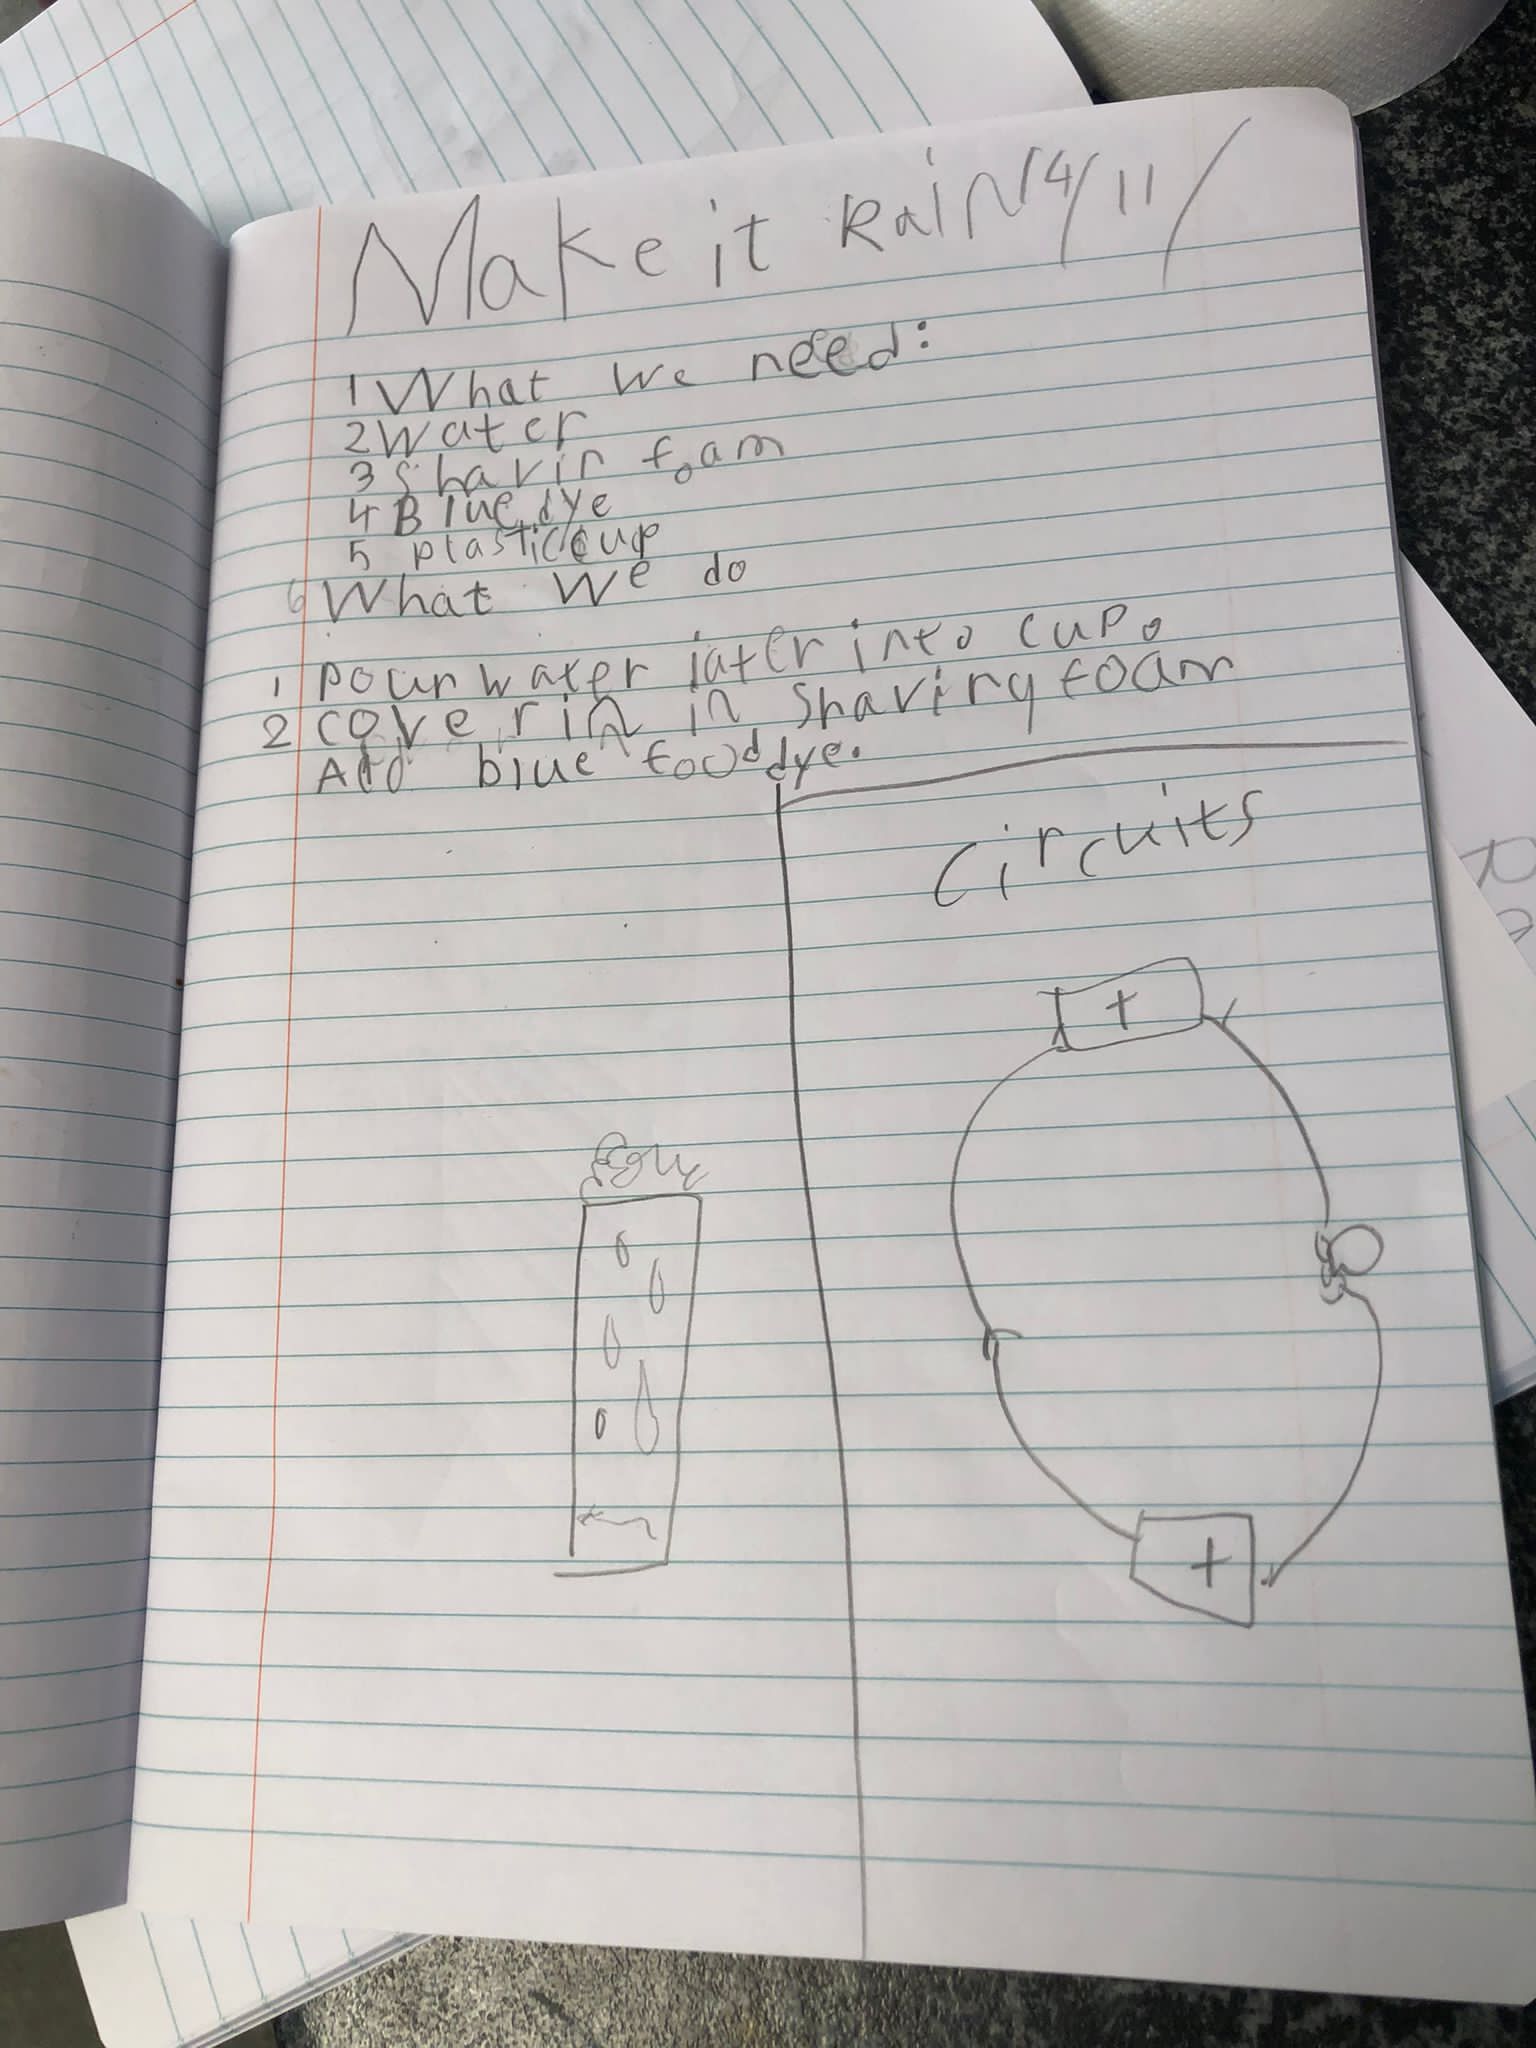 Make it Rain 14/11/
1 What we need:
2 Water
3 Shavin foam
4 Blue dye
5 plastic cup
6 What we do
1 pour water into cup.
2 cover in in shaving foam
Add blue food dye.
Circuits
+
+